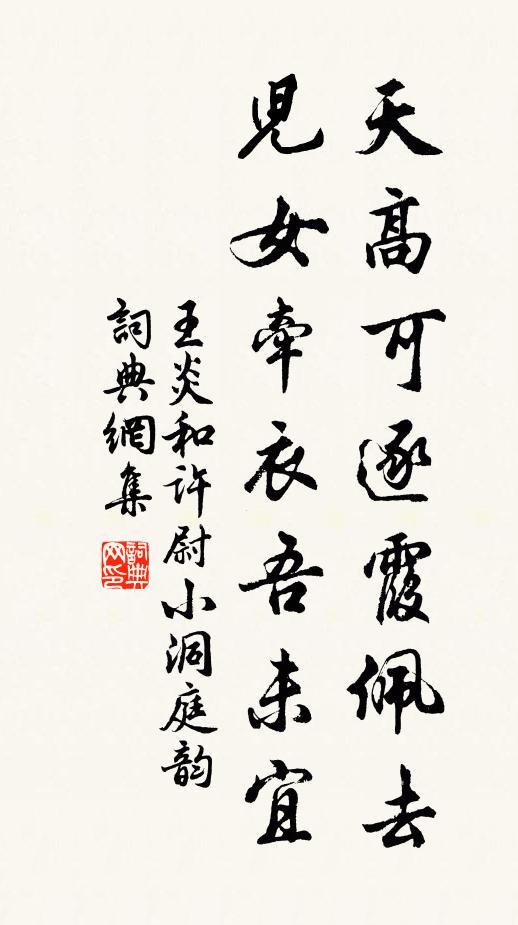 天高可逐霞佩去
兒女牽衣吾未宜
王炎和許尉小洞庭韵
詞典網集
詞典网印